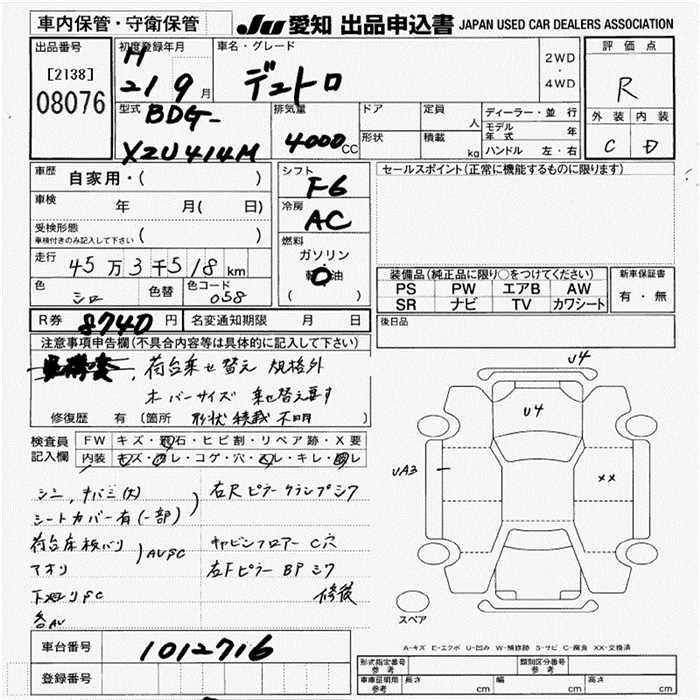 車内保管・守衛保管
JU 愛知 出品申込書 JAPAN USED CAR DEALERS ASSOCIATION
出品番号
[2138]
08076
初度登録年月
H
21 9 月
車名・グレード
デュトロ
2WD
・
4WD
評価点
R
外装 内装
C D
型式
BDG-
XZU414M
排気量
4000 CC
ドア
形状
定員
人
積載
kg
ディーラー・並行
モデル年式 年
ハンドル 左・右
車歴
自家用・( )
車検
年 月( 日)
受検形態
車検付きのみ記入して下さい ( )
走行
45万3千518km
色
シロ
色替
色コード
058
シフト
F6
冷房
AC
燃料
ガソリン
軽油
( )
セールスポイント(正常に機能するものに限ります)
装備品(純正品に限り○をつけてください)
PS PW エアB AW
SR ナビ TV カワシート
新車保証書
有・無
R券 8740円
名変通知期限 月 日
後日品
注意事項申告欄(不具合内容等は具体的に記入して下さい)
荷台乗せ替え 規格外
ホバーサイズ 乗せ替え要す
修復歴 有 [箇所 形状積載不明 ]
検査員
記入欄
FW キズ・飛石・ヒビ割・リペア跡・X要
内装 キズ・ヨゴレ・コゲ・穴・スレ・キレ・
シミ、キバミ(大)
シートカバー有(一部)
荷台床板バリ
アオリ
AUSC
下廻りSC
各AU
右Rピラー クランプシワ
キャビンフロアー C穴
左Fピラー BPシワ
修後
U4
U4
UA3
XX
スペア
A-キズ E-エクボ U-凹み W-補修跡 S-サビ C-腐食 XX-交換済
車台番号
1012716
登録番号
形式指定番号
参考
類別区分番号
参考
車庫証明用
参考
長さ cm
幅 cm
高さ cm